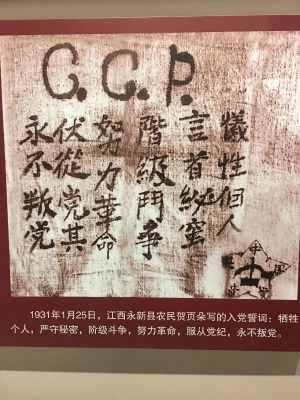 C.C.P.
犧牲個人
言首秘蜜
階級鬥爭
努力革命
伏從党其
永不叛党
1931年1月25日，江西永新县农民贺页朵写的入党誓词：牺牲
个人，严守秘密，阶级斗争，努力革命，服从党纪，永不叛党。